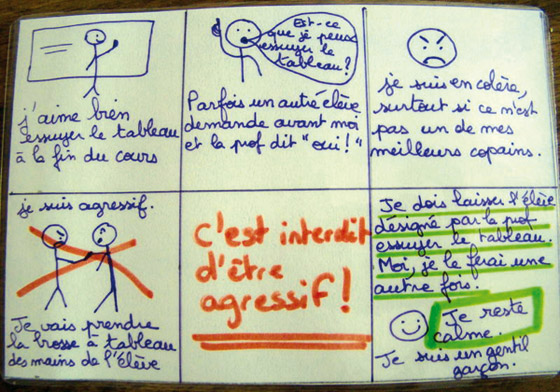 j'aime bien
essuyer le tableau
à la fin du cours
Est-ce
que je peux
essuyer le
tableau?
Parfois un autre élève
demande avant moi
et la prof dit "oui!"
je suis en colère,
surtout si ce n'est
pas un de mes
meilleurs copains.
je suis agressif.
Je vais prendre
la brosse à tableau
des mains de l'élève
c'est interdit
d'être
agressif!
Je dois laisser l'élève
désigné par la prof
essuyer le tableau.
Moi, je le ferai une
autre fois.
Je reste
calme.
Je suis un gentil
garçon.